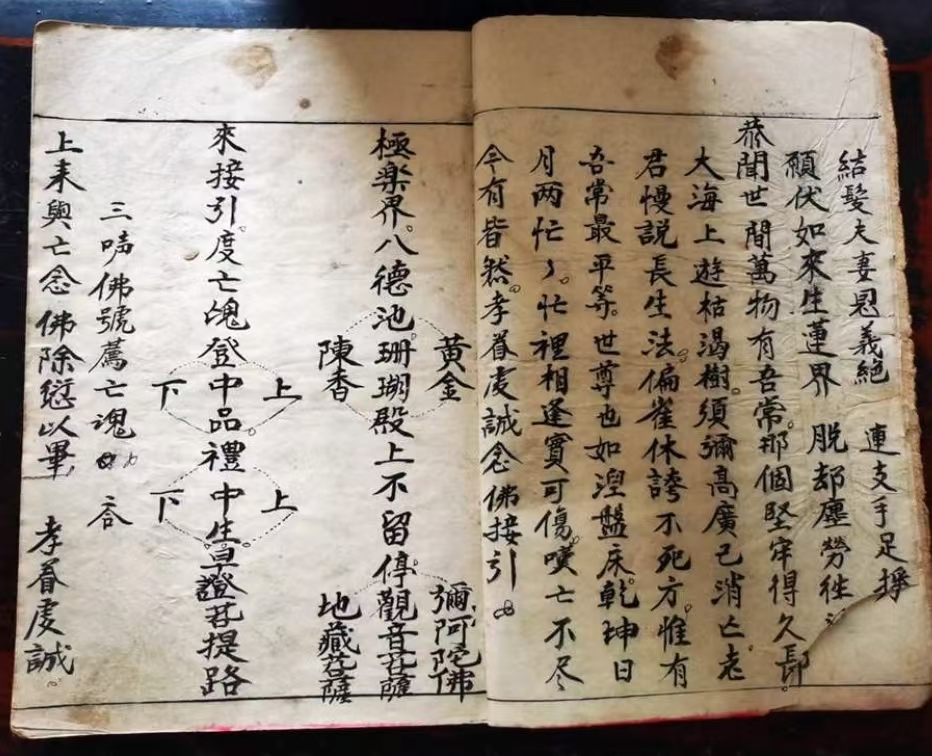 結髮夫妻恩義絕 連支手足捹
願伏如來生蓮界 脱却塵勞徃
恭聞世間萬物有吾常。那個堅牢得久長。
大海上遊枯渴樹。須彌高廣已消亡。老
君慢説長生法。偏雀休誇不死方。惟有
吾常最平等。世尊也如湼盤床。乾坤日
月两忙〻。忙裡相逢實可傷。嘆亡不尽
今有皆然。孝眷虔誠念佛接引
黃金 彌阿陀佛
極楽界。八德池。珊瑚殿上不留停。觀音菩薩
陳香 地藏菩薩
上 上
來接引。度亡魂登中品。禮中生。早證菩提路
下 下
三啨佛號薦亡魂 吝
上来與亡念佛除愆以畢 孝眷虔誠。